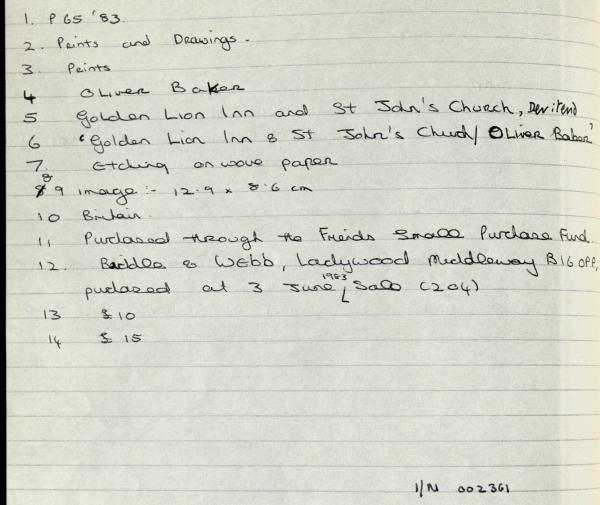 1. P 65 '83.
2. Prints and Drawings.
3. Prints
4 Oliver Baker
5 Golden Lion Inn and St John's Church, Deritend
6 'Golden Lion Inn & St John's Church / Oliver Baker'
7. Etching on wove paper
8
9 image :- 12.9 x 8.6 cm
10 Britain.
11 Purchased through the Friends Small Purchase Fund.
12. Biddle & Webb, Ladywood Middleway B16 0PP,
purchased at 3 June 1983 Sale (204)
13 £10
14 £15
I/N 002361